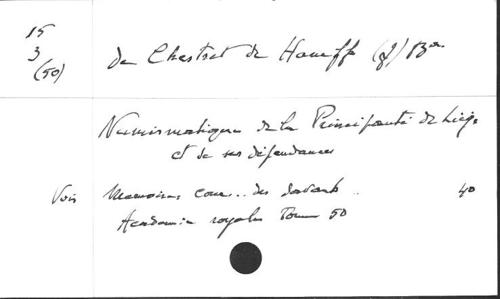 15
3
(50)
de Chestret de Haneffe (J) Bon
Numismatique de la Principauté de Liège
et de ses dépendances
Voir Memoires cour.. des savants .. 40
Academie royale Tome 50